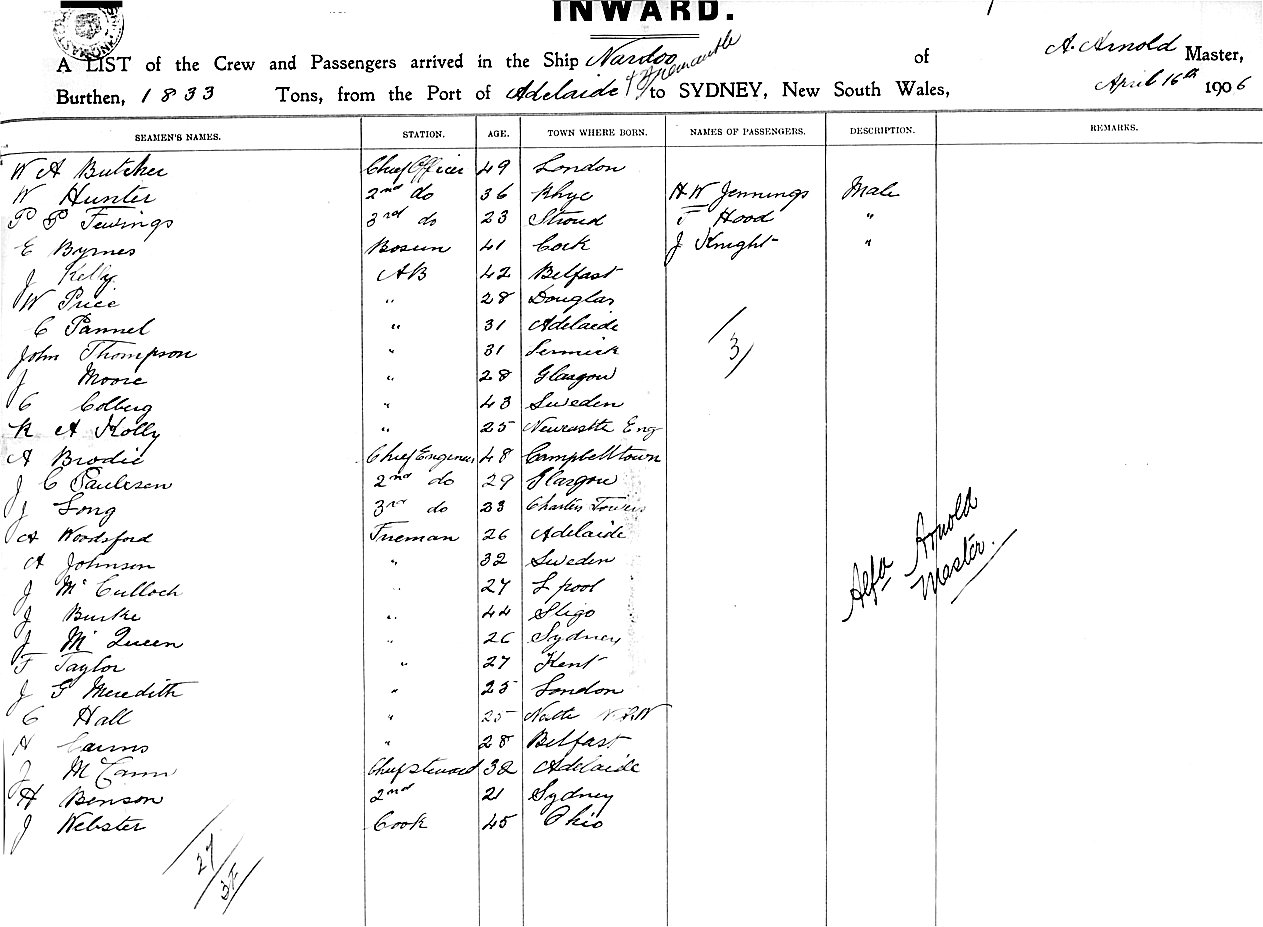 INWARD.
A LIST of the Crew and Passengers arrived in the Ship Nardoo of A. Arnold Master,
Burthen, 1833 Tons, from the Port of Adelaide & Fremantle to SYDNEY, New South Wales, April 16th 1906
SEAMEN'S NAMES. STATION. AGE. TOWN WHERE BORN. NAMES OF PASSENGERS. DESCRIPTION. REMARKS.
W A Butcher Chief Officer 49 London
W Hunter 2nd do 36 Rhye H W Jennings Male
P P Fewings 3rd do 23 Stroud F Hood "
E Byrnes Bosun 41 Cork J Knight "
J Kelly AB 42 Belfast
W Price " 28 Douglas
C Pannel " 31 Adelaide
John Thompson " 31
J Moore " 28 Glasgow
C Colberg " 43 Sweden
3
R A Kolly " 25 Newcastle Eng
A Brodie Chief Engineer 48 Campbelltown
J C Paulesen 2nd do 29 Glasgow
J Long 3rd do 23 Charters Towers
A Woodsford Fireman 26 Adelaide
A Johnson " 32 Sweden
J McCulloch " 27 L pool
J Burke " 44 Sligo
J McQueen " 26 Sydney
F Taylor " 27 Kent
J G Meredith " 25 London
C Hall " 25
A Cairns " 28 Belfast
J McCann Chief steward 32 Adelaide
H Benson 2nd 21 Sydney
J Webster Cook 45 Ohio
Alfd Arnold
Master.
27